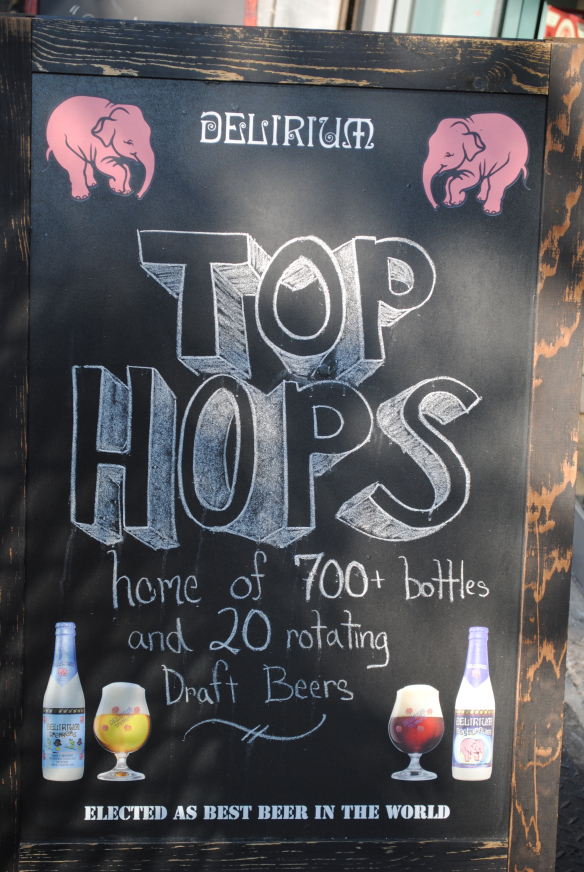 DELIRIUM
TOP
HOPS
home of 700+ bottles
and 20 rotating
Draft Beers
DELIRIUM
tremens
DELIRIUM
nocturnum
ELECTED AS BEST BEER IN THE WORLD